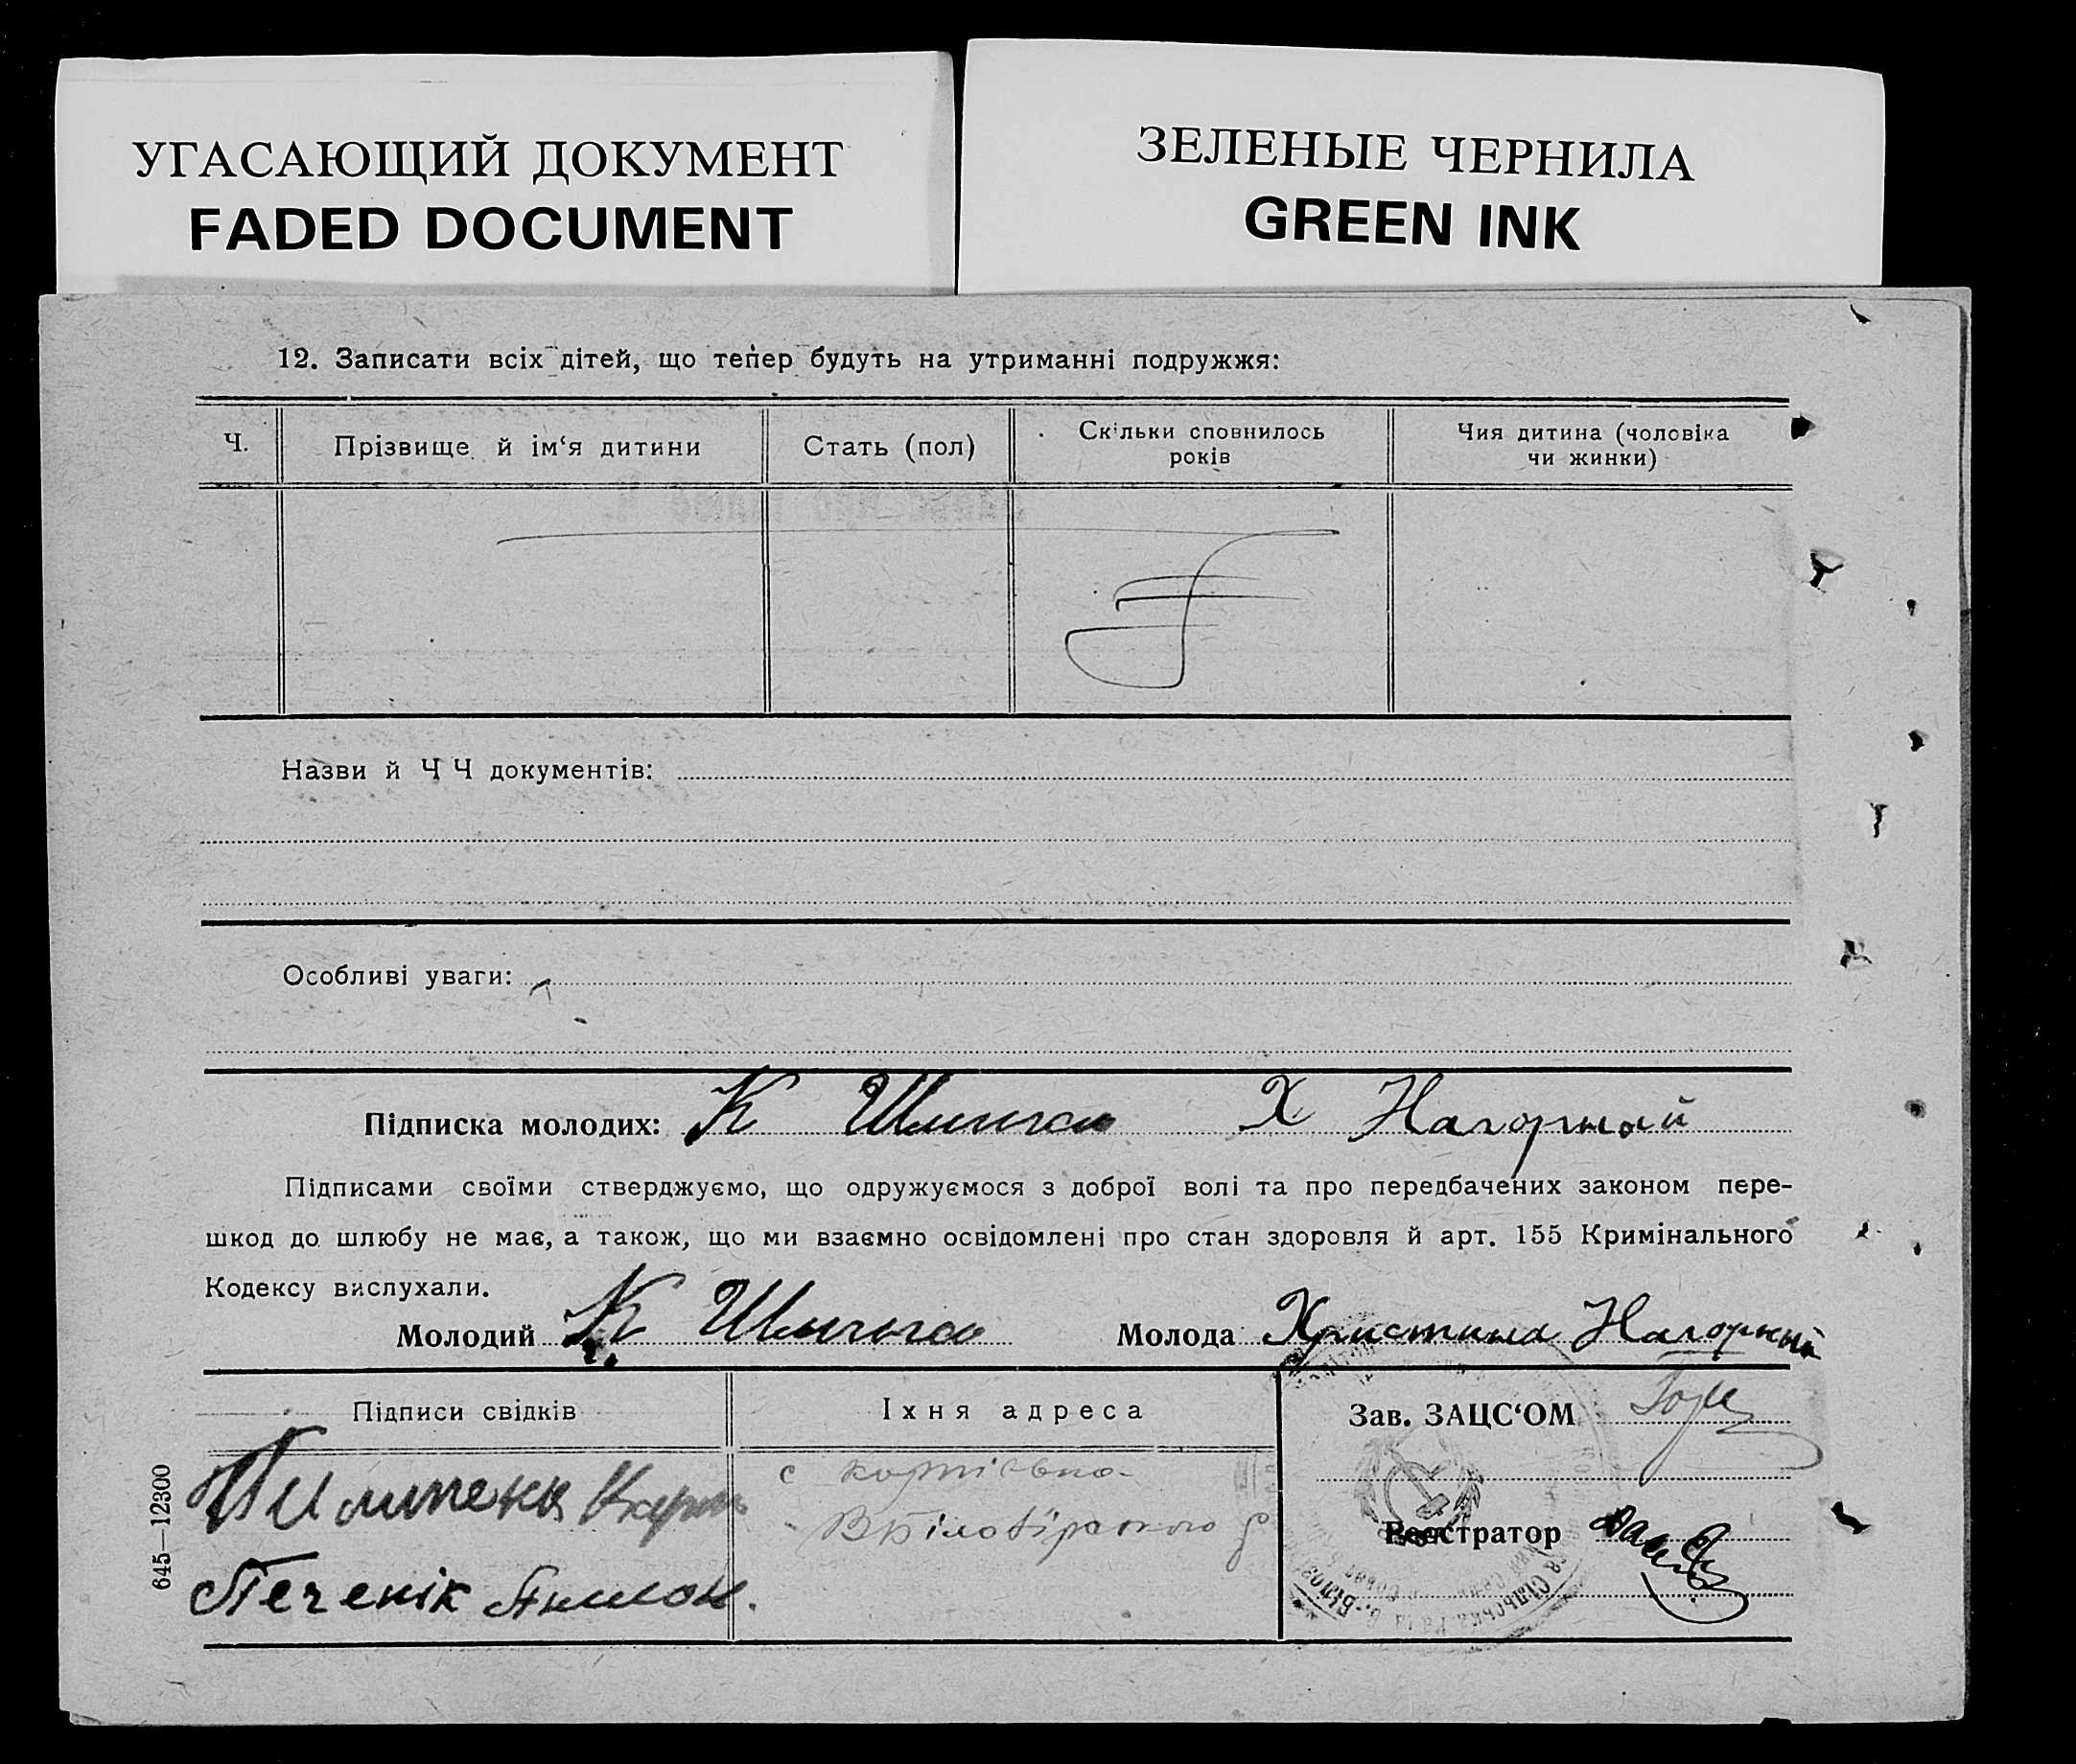 УГАСАЮЩИЙ ДОКУМЕНТ
FADED DOCUMENT
ЗЕЛЕНЫЕ ЧЕРНИЛА
GREEN INK
12. Записати всіх дітей, що тепер будуть на утриманні подружжя:
Ч.
Прізвище й ім‘я дитини
Стать (пол)
Скільки сповнилось
років
Чия дитина (чоловіка
чи жинки)
Назви й ЧЧ документів:
Особливі уваги:
Підписка молодих: К Х Нагорный
Підписами своїми стверджуємо, що одружуємося з доброї волі та про передбачених законом пере-
шкод до шлюбу не має, а також, що ми взаємно освідомлені про стан здоровля й арт. 155 Кримінального
Кодексу вислухали.
Молодий К Молода Христина Нагорный
Підписи свідків
Їхня адреса
Зав. ЗАЦС‘ОМ
с
Реєстратор
Печенік
645—12300